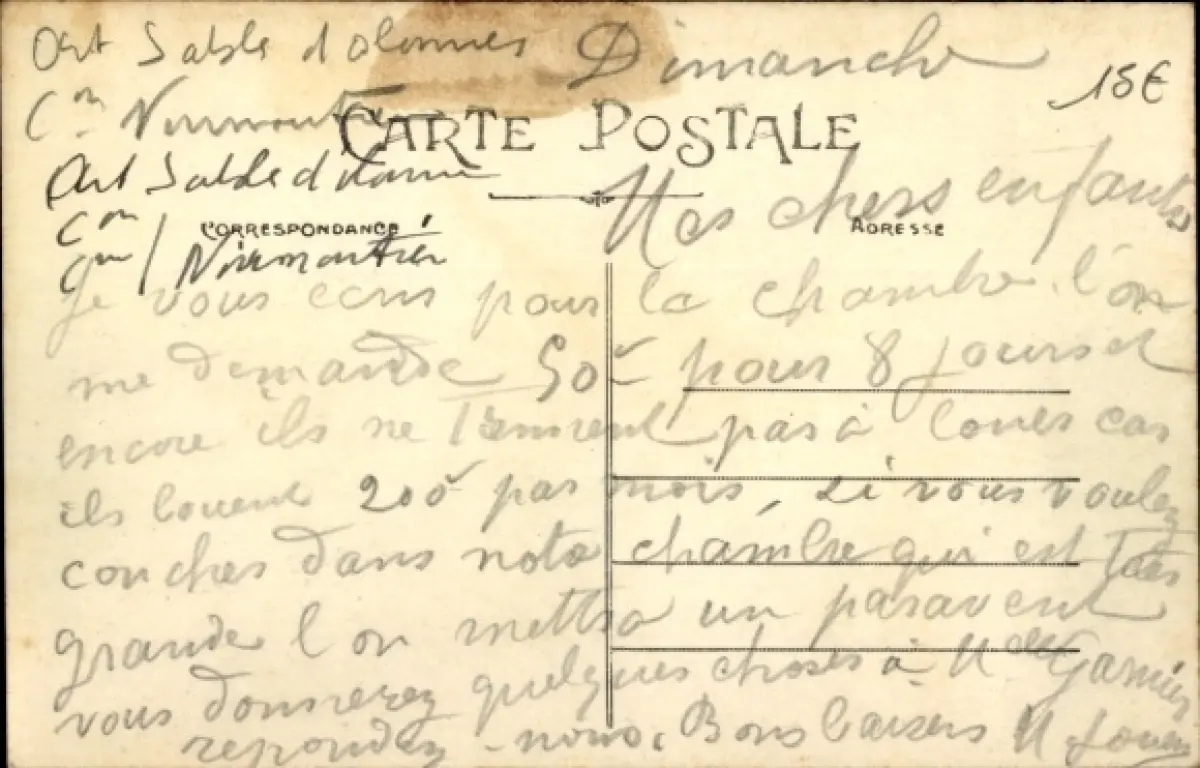 Art Sable d olonnes
Dimanche
15€
Cᵒⁿ Noirmoutier
CARTE POSTALE
Art Sable d olonne
Mes chers enfants
Cᵒⁿ
CORRESPONDANCE
ADRESSE
Noirmoutier
Je vous ecris pour la chambre. l'on
me demande 50ᶠ pour 8 jours et
encore ils ne tiennent pas à louer car
ils louent 200ᶠ par mois, si vous voulez
coucher dans notre chambre qui est tres
grande l on mettra un paravent
vous donnerez quelques choses à Mᵉˡˡᵉ Garnier
repondez-nous. Bons baisers M